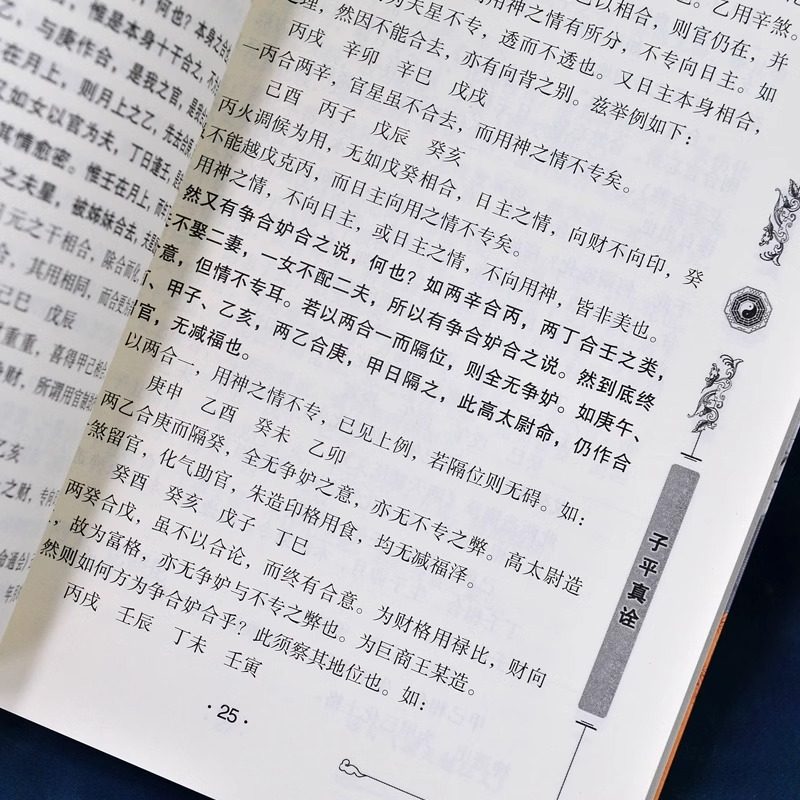 ，何也？本身之合
惟是本身十干合之，不
与庚作合，是我之官，是我
在月上，则月上之乙，先去合庚
又如女以官为夫，丁日逢壬，是
其情愈密。惟壬在月上，而年
之夫星，被姊妹合去，夫星
元之干相合，除合而化
合，其用相同，而合更
己巳 戊辰
重重，喜得甲己
争财，所谓用官制
乙亥
之财，专向
己以相合，则官仍在，并
为夫星不专，透而不透也。又日主本身相合，
理，然因不能合去，亦有向背之别。兹举例如下：
丙戌 辛卯 辛巳 戊戌
一丙合两辛，官星虽不合去，而用神之情不专矣。
己酉 丙子 戊辰 癸亥
丙火调候为用，无如戊癸相合，日主之情，向财不向印，癸
不能越戊克丙，而日主向用之情不专矣。
用神之情，不向日主，或日主之情，不向用神，皆非美也。
然又有争合妒合之说，何也？如两辛合丙，两丁合壬之类，
不娶二妻，一女不配二夫，所以有争合妒合之说。然到底终
意，但情不专耳。若以两合一而隔位，则全无争妒。如庚午、
、甲子、乙亥，两乙合庚，甲日隔之，此高太尉命，仍作合
官，无减福也。
以两合一，用神之情不专，已见上例，若隔位则无碍。如：
庚申 乙酉 癸未 乙卯
两乙合庚而隔癸，全无争妒之意，亦无不专之弊。高太尉造
煞留官，化气助官，朱造印格用食，均无减福泽。
癸酉 癸亥 戊子 丁巳
两癸合戊，虽不以合论，而终有合意。为财格用禄比，财向
，故为富格，亦无争妒与不专之弊也。为巨商王某造。
然则如何方为争合妒合乎？此须察其地位也。如：
丙戌 壬辰 丁未 壬寅
·25·
子平真诠